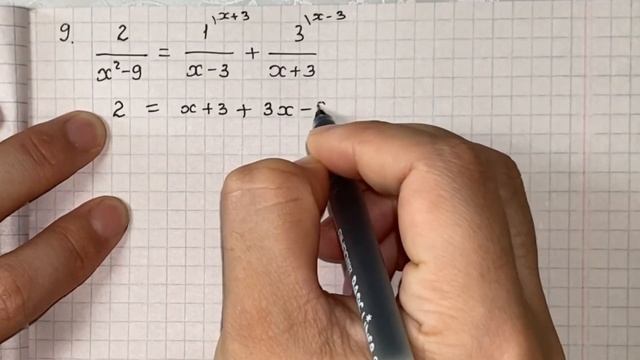 9. 2/(x²-9) = 1^(x+3)/(x-3) + 3^(x-3)/(x+3)
2 = x+3 + 3x -